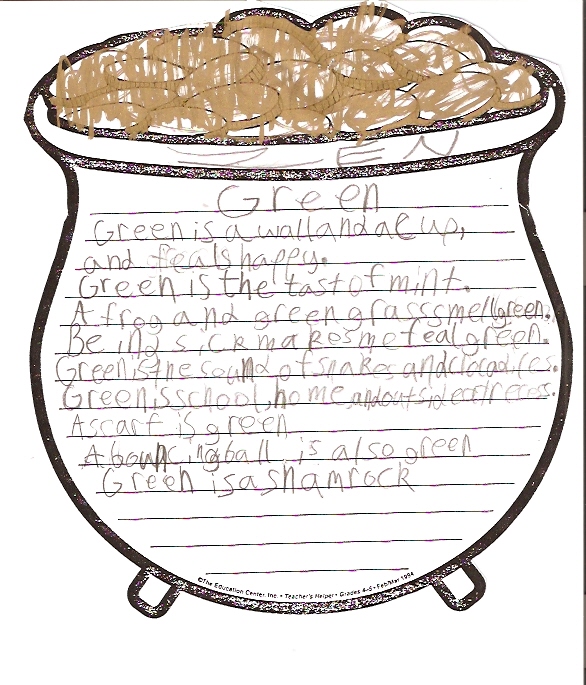 ZEN
Green
Green is a wall and a cup,
and feals happy.
Green is the tast of mint.
A frog and green grass smell green.
Being sick makes me feal green.
Green is the sound of snakes and crocodiles.
Green is school, home, and outside at recess.
A scarf is green
A bouncing ball is also green
Green is a shamrock
©The Education Center, Inc. • Teacher's Helper • Grades 4–5 • Feb/Mar 1994